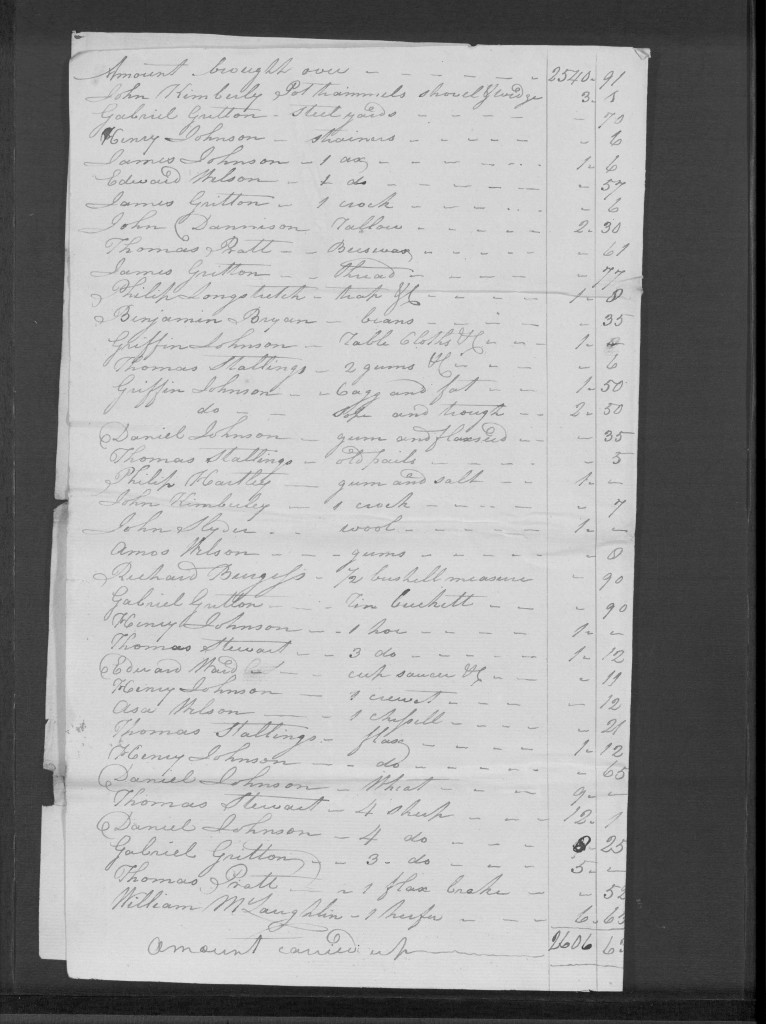 Amount brought over - - - - - 2540 - 91
John Kimberly Pot trammels shovel & wedge 3 - 8
Gabriel Gritton - Steel yards - - - - - 70
Henry Johnson - strainers - - - - - 6
James Johnson - 1 ax - - - - 1 - 6
Edward Wilson - 1 do - - - - - 57
James Gritton - 1 crock - - - - - 6
John Dannison Tallow - - - 2 - 30
Thomas Pratt - - Beeswax - - - - - 61
James Gritton - thread - - - - - 77
Philip Longstreth - trap &C - - - - 1 - 8
Benjamin Bryan - beans - - - - - 35
Griffin Johnson - Table Cloths &C - - 1 -
Thomas Stallings - 2 gums &C - - - 6
Griffin Johnson - - 6 agg and fat - - 1 - 50
do - - and trough - - 2 - 50
Daniel Johnson - gum and flaxseed - - - 35
Thomas Stallings - old pails - - - - - 5
Philip Hartley - gum and salt - - 1 - -
John Kimberley - 1 crock - - - - - 7
John Slyder - - wool - - - - 1 - -
Amos Wilson - - - gums - - - - - 8
Richard Burgess - 1/2 bushell measure - 90
Gabriel Gritton - - - Tin buckett - - - 90
Henry Johnson - - 1 hoe - - - - 1 - -
Thomas Stewart - - 3 do - - - - 1 - 12
Edward Waid - - cup saucer &C - - - 11
Henry Johnson - - 1 cruet - - - - - 12
Asa Wilson - - - 1 chissell - - - - 21
Thomas Stallings - flax - - - - 1 - 12
Henry Johnson - - do - - - - - 65
Daniel Johnson - Wheat - - - - 9 - -
Thomas Stewart - 4 sheep - - - - 12 - 1
Daniel Johnson - 4 do - - - - 8 - 25
Gabriel Gritton - - 3 - do - - - - 5 - -
Thomas Pratt - - 1 flax brake - - - 52
William McLaughlin - 1 heifer - - - 6 - 65
Amount carried up 2606